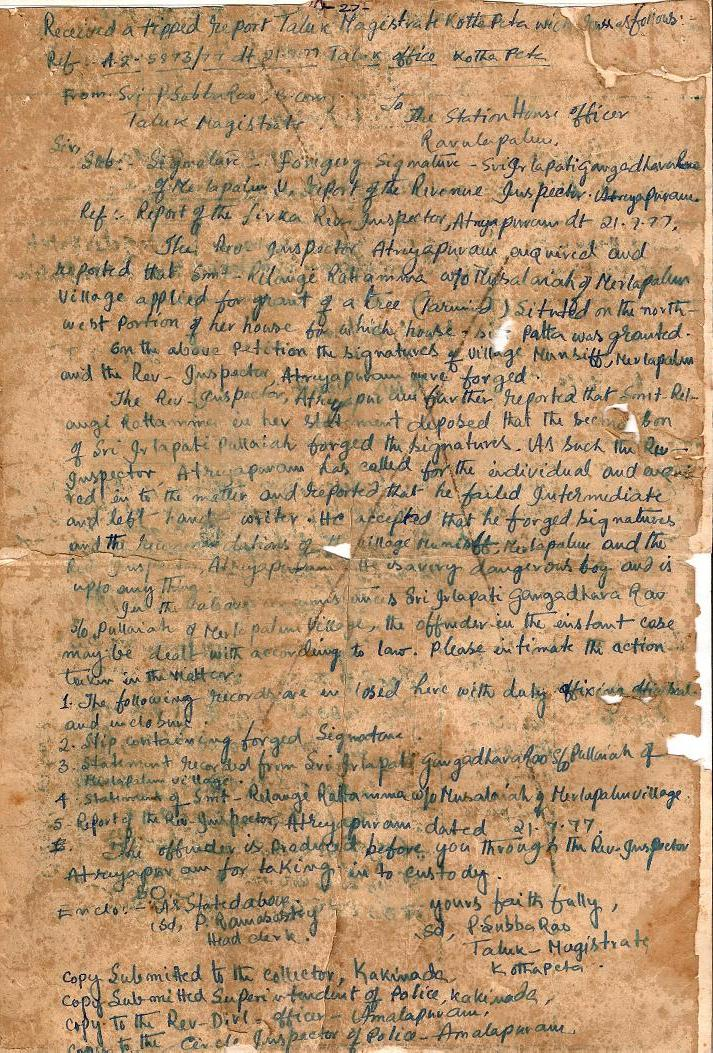 -27-
Received a tipped report Taluk Magistrate Kotha Peta which runs as follows:-
Ref: A.2-5973/77 dt 21.7.77 Taluk office Kotha Peta
From Sri P. SubbaRao, B.com,
Taluk Magistrate.
To
The Station House officer
Ravulapalem.
Sir,
Sub:- Signature - Forigerg Signature - Sri Irlapati Gangadhara Rao
of Merlapalem V. report of the Revenue Inspector. Atreyapuram.
Ref:- Report of the Firka Rev. Inspector, Atreyapuram dt 21.7.77.
The Rev. Inspector Atreyapuram enquired and
reported that Smt- Relangi Rattamma w/o Musalaiah of Merlapalem
village applied for grant of a tree (Tarmind) Situted on the north-
west Portion of her house for which house-site Patta was granted.
On the above Petition the signatures of village Munsiff, Merlapalem
and the Rev- Inspector, Atreyapuram were forged.
The Rev- Inspector, Atreyapuram further reported that Smt- Rel-
angi Rattamma in her statement deposed that the second son
of Sri Irlapati Pullaiah forged the signatures. As such the Rev-
Inspector Atreyapuram has called for the individual and enqui-
red in to the matter and reported that he failed Intermediate
and left hand writer. He accepted that he forged signatures
and the recommendations of the village Munsiff, Merlapalem and the
Rev Inspector, Atreyapuram He is a very dangerous boy and is
upto any thing.
In the above circumstances Sri Irlapati Gangadhara Rao
S/o Pullaiah of Merlapalem Village, the offinder in the instant case
may be dealt with according to law. Please intimate the action
taken in the matter.
1. The following records are in losed here with duty affixing
and inclosure.
2. Slip containing forged Signature.
3. Statement recorded from Sri Irlapati Gangadhara Rao S/o Pullaiah of
Merlapalem village.
4. Statement of Smt- Relangi Rattamma w/o Musalaiah of Merlapalem village.
5. Report of the Rev. Inspector, Atreyapuram dated 21.7.77.
The offinder is Produced before you through the Rev-Inspector
Atreyapuram for taking in to custody.
Enclo:- As Stated above.
yours faith fully,
Sd,
Head clerk.
Sd, P. SubbaRao
Taluk-Magistrate
Kothapeta.
copy Submitted to the collector, Kakinada.
copy Submitted Superintendent of Police, Kakinada,
copy to the Rev-Divl-officer-Amalapuram.
copy to the Circle Inspector of Police-Amalapuram.